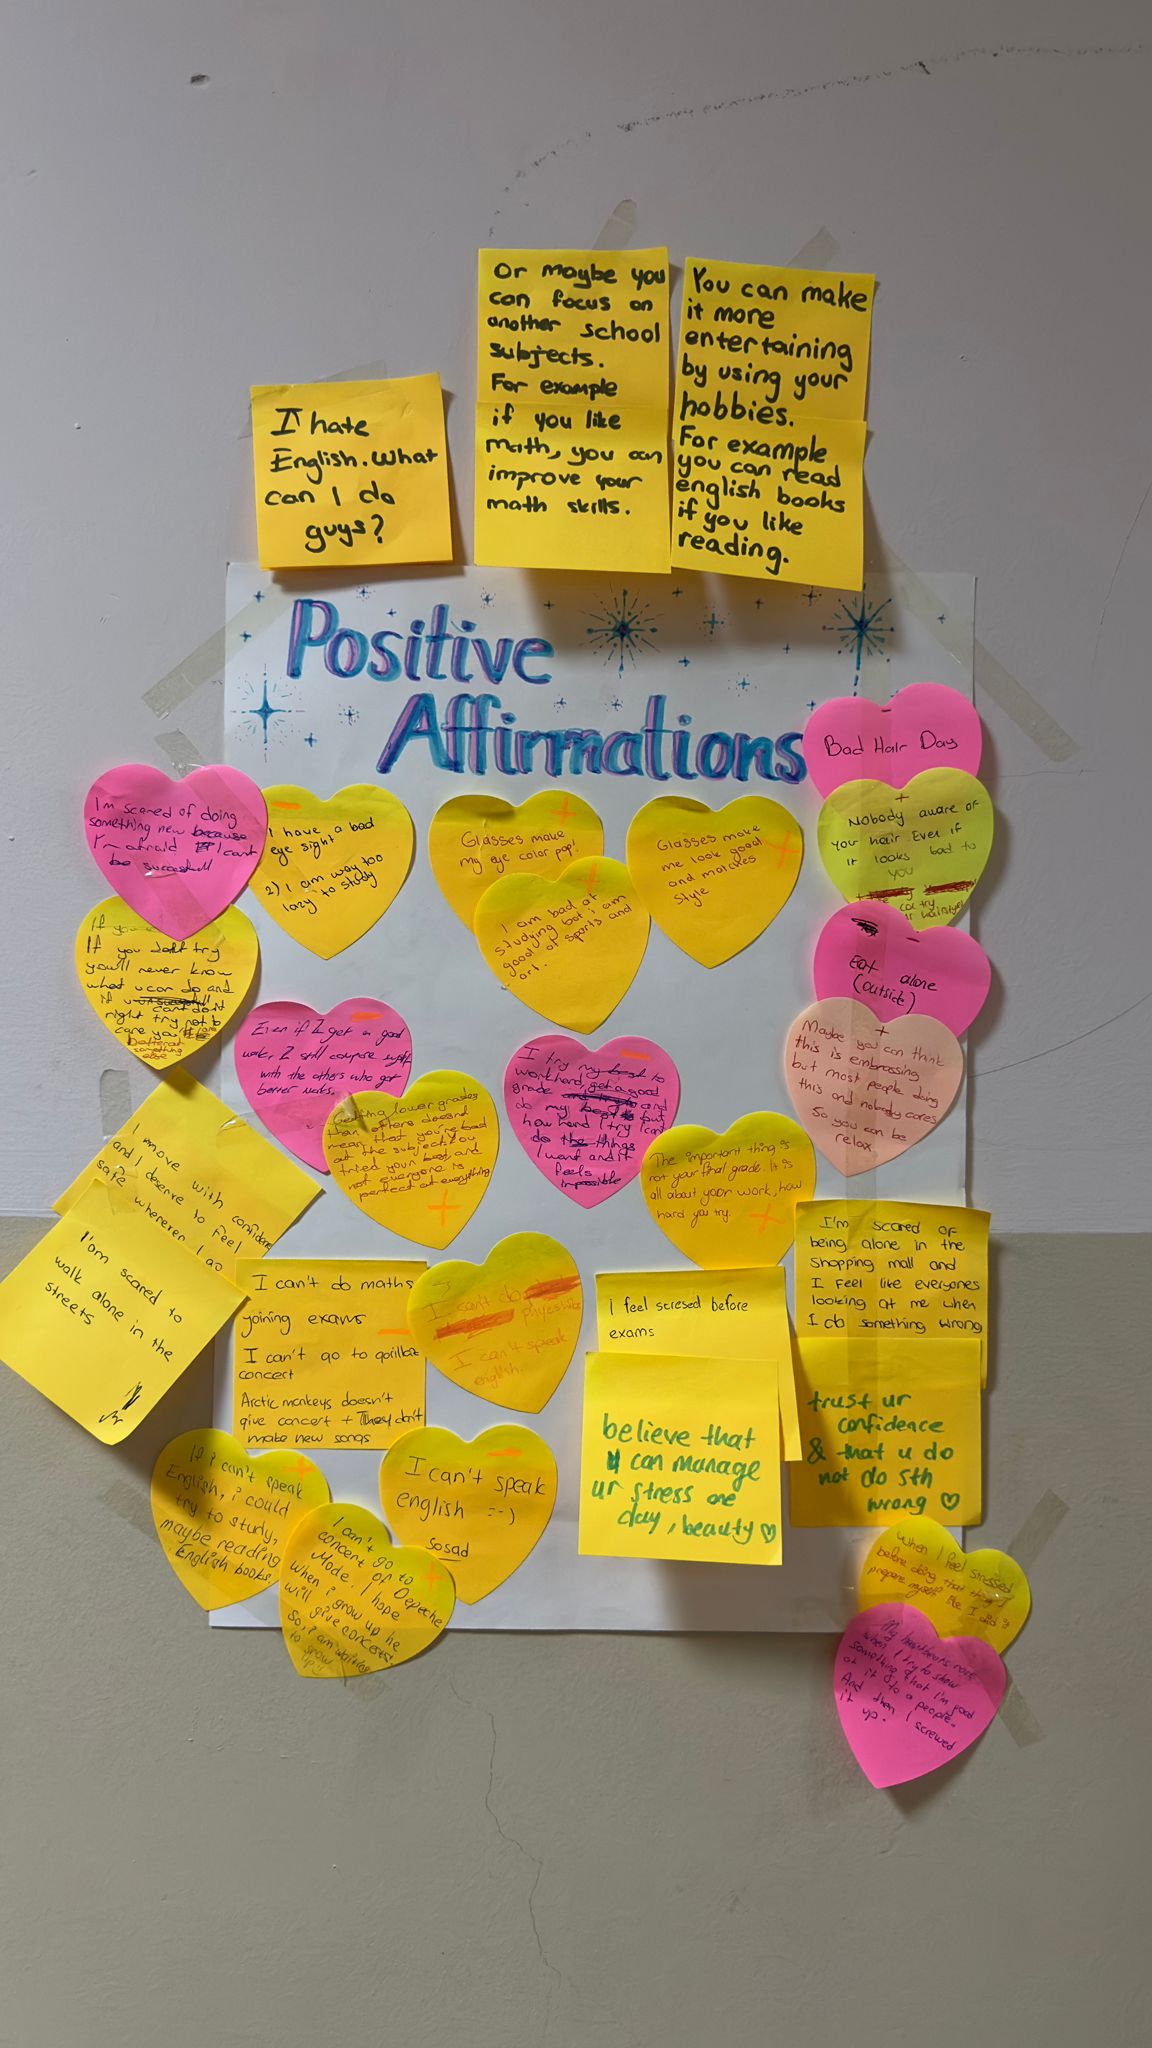 Or maybe you
can focus on
another school
subjects.
For example
if you like
math, you can
improve your
math skills.
You can make
it more
entertaining
by using your
hobbies.
For example
you can read
english books
if you like
reading.
I hate
English. What
can I do
guys?
Positive
Affirmations
Bad Hair Day
+
Nobody aware of
your hair. Even if
it looks bad to
you
Eat alone
(outside)
+
Maybe you can think
this is embrassing
but most people doing
this and nobody cares
So you can be
relax
I'm scared of doing
something new because
I'm afraid I can't
be successfull
If you don't try
you'll never know
what u can do and
if u can't do it
right try not to
care
something
else
I have a bad
eye sight
2) I am way too
lazy to study
Glasses make
my eye color pop!
I am bad at
studying but i am
good at sports and
art.
Glasses make
me look good
and matches
style
Even if I get a good
mark, I still compare myself
with the others who get
better marks.
Getting lower grades
than others doesnt
mean that you're bad
at the subject. You
tried your best, and
not everyone is
perfect at everything
+
I try my best to
work hard, get a good
grade and
do my best but
how hard I try I can't
do the things
I want and it
feels
impossible
The important thing is
not your final grade. It is
all about your work, how
hard you try.
+
I move with confidence
and I deserve to feel
safe wherever I go
I'am scared to
walk alone in the
streets
I can't do maths
joining exams
I can't go to gorillaz
concert
Arctic monkeys doesn't
give concert + They don't
make new songs
I can't do
I can't speak
english.
i feel scresed before
exams
believe that
u can manage
ur stress one
day, beauty ♡
I'm scared of
being alone in the
shopping mall and
I feel like everyones
looking at me when
I do something wrong
trust ur
confidence
& that u do
not do sth
wrong ♡
If i can't speak
English, i could
try to study,
maybe reading
English books.
I can't go to
concert of Depeche
Mode. I hope
when i grow up he
will give concerts.
So, i am waiting
to grow
up
I can't speak
english :-)
so sad
When I feel stressed
before doing that thing I
prepare myself like I did it
My heartbeats
when I try to show
something that I'm good
at it to a people.
And then I screwed
it up.